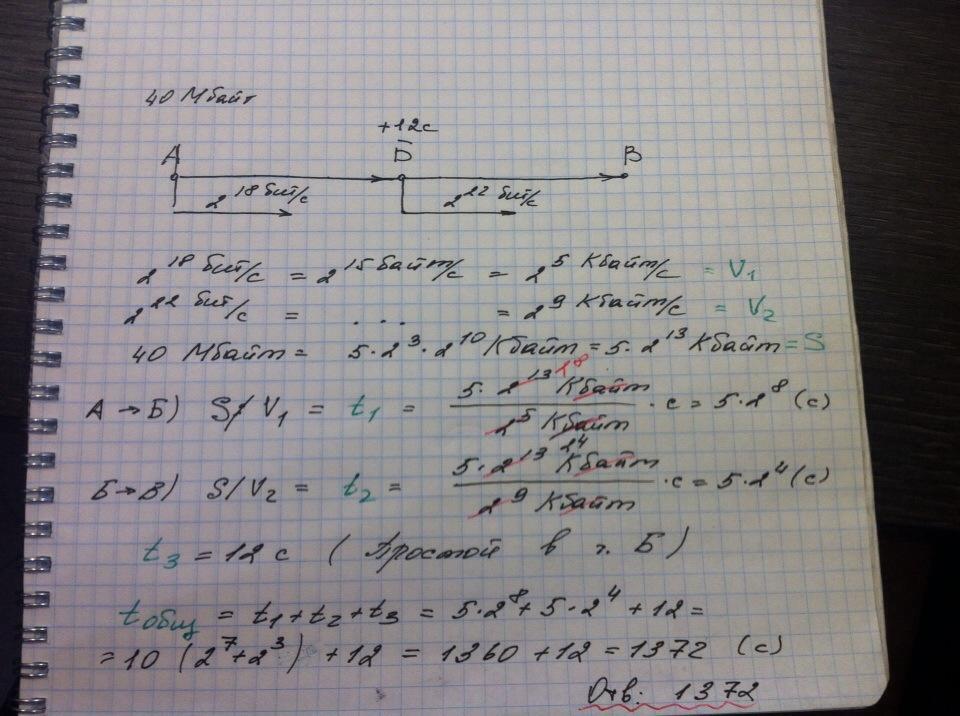 40 Мбайт
+12с
А Б В
2^18 бит/с 2^22 бит/с
2^18 бит/с = 2^15 байт/с = 2^5 Кбайт/с = V₁
2^22 бит/с = ... = 2^9 Кбайт/с = V₂
40 Мбайт = 5·2^3·2^10 Кбайт = 5·2^13 Кбайт = S
А → Б) S/V₁ = t₁ = 5·2^13 2^8 Кбайт / 2^5 Кбайт · с = 5·2^8 (с)
Б → В) S/V₂ = t₂ = 5·2^13 2^4 Кбайт / 2^9 Кбайт · с = 5·2^4 (с)
t₃ = 12 с (Простой в т. Б)
tобщ = t₁ + t₂ + t₃ = 5·2^8 + 5·2^4 + 12 =
= 10 (2^7 + 2^3) + 12 = 1360 + 12 = 1372 (с)
Отв: 1372